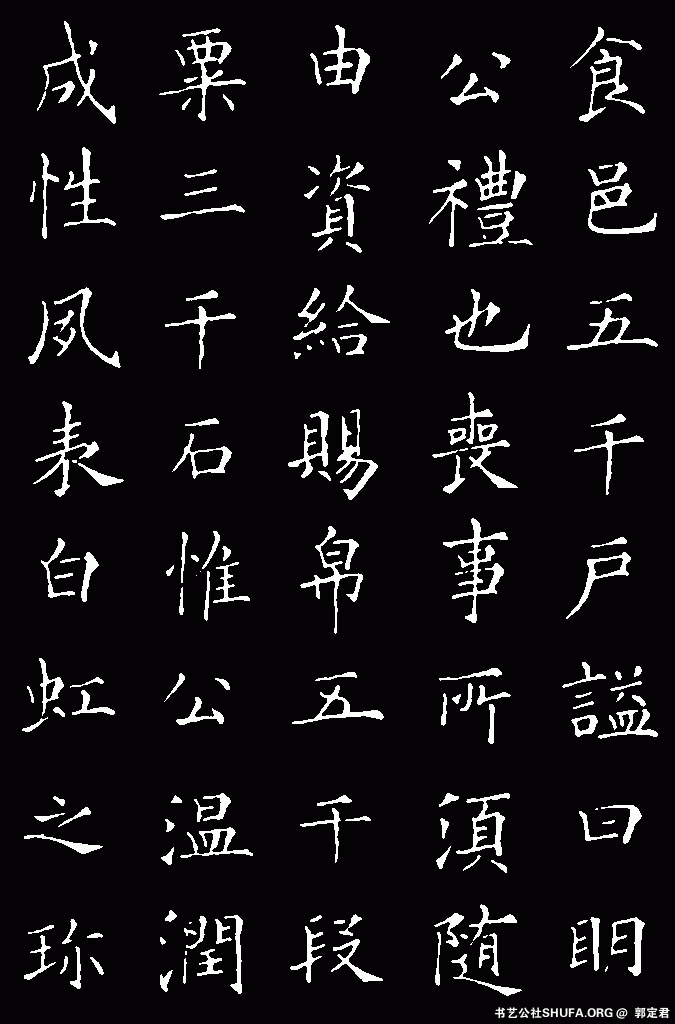 食邑五千戶謚曰明
公禮也喪事所湏随
由資給賜帛五千段
粟三千石惟公温潤
成性夙表白虹之珎
书艺公社SHUFA.ORG @ 郭定君